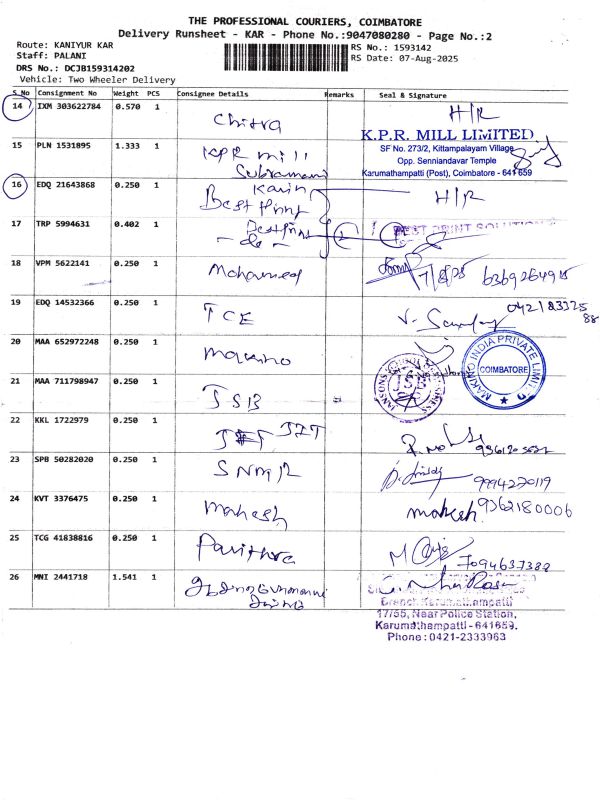 THE PROFESSIONAL COURIERS, COIMBATORE
Delivery Runsheet - KAR - Phone No.:9047080280 - Page No.:2
Route: KANIYUR KAR
RS No.: 1593142
Staff: PALANI
RS Date: 07-Aug-2025
DRS No.: DCJB159314202
Vehicle: Two Wheeler Delivery
S.No Consignment No Weight PCS Consignee Details Remarks Seal & Signature
14 IXM 303622784 0.570 1 Chitra H/R
K.P.R. MILL LIMITED
SF No. 273/2, Kittampalayam Village
Opp. Senniandavar Temple
Karumathampatti (Post), Coimbatore - 641 659
15 PLN 1531895 1.333 1 KPR mill
Subramani
16 EDQ 21643868 0.250 1 Karin H/R
Best Print
17 TRP 5994631 0.402 1 Best Print BEST PRINT SOLUTION
- do -
18 VPM 5622141 0.250 1 Mohammed 7/8/25 6369264915
19 EDQ 14532366 0.250 1 TCE
20 MAA 652972248 0.250 1 Makino
MAKINO INDIA PRIVATE LIMITED
COIMBATORE
21 MAA 711798947 0.250 1 JSB
JSB
22 KKL 1722979 0.250 1 JIT
23 SPB 50282020 0.250 1 SNMR 9994220119
24 KVT 3376475 0.250 1 Mahesh mahesh 9362180006
25 TCG 41838816 0.250 1 Pavithra 7094637388
26 MNI 2441718 1.541 1
Branch Karumathampatti
17/55, Near Police Station,
Karumathampatti - 641659.
Phone : 0421-2333963